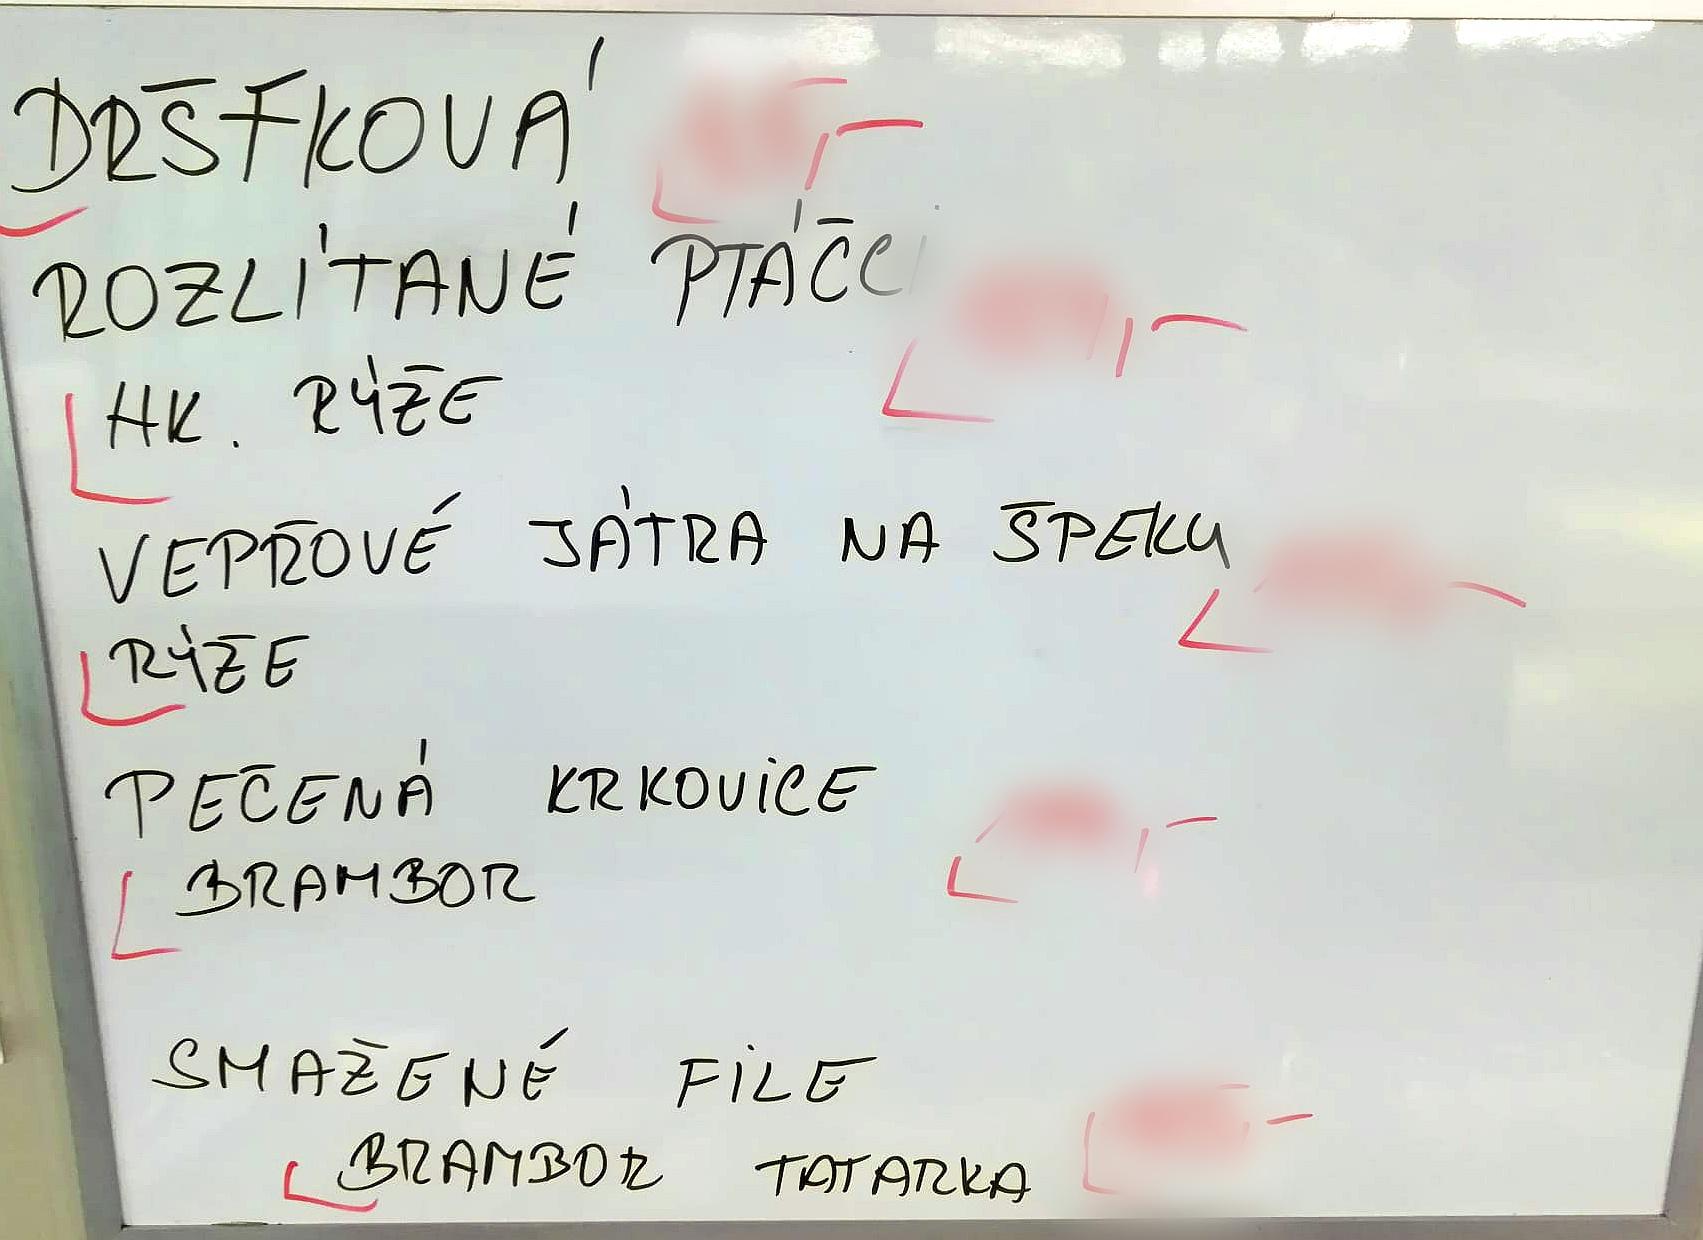 DRŠŤKOVÁ
ROZLÍTANÉ PTÁČCI
HK. RÝŽE
VEPŘOVÉ JÁTRA NA ŠPEKU
RÝŽE
PEČENÁ KRKOVICE
BRAMBOR
SMAŽENÉ FILE
BRAMBOR TATARKA